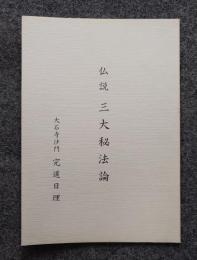 仏説 三大秘法論
大石寺沙門 完道日理